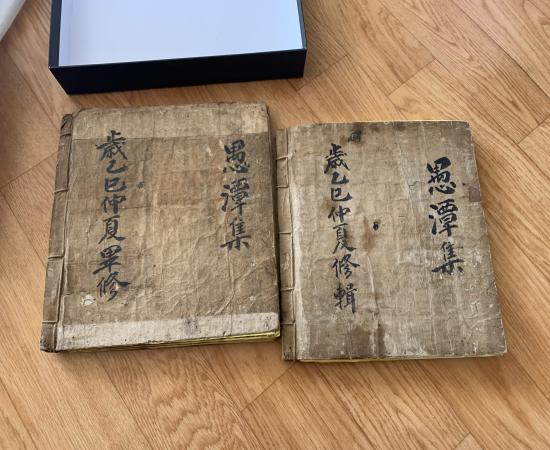 愚潭集
歲乙巳仲夏修輯
愚潭集
歲乙巳仲夏畢修